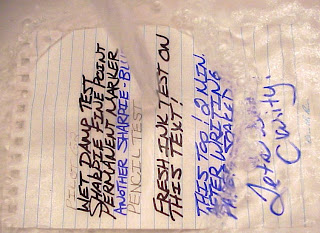 WET DAMP TEST
SHARPIE FINE POINT
PERMANENT MARKER
ANOTHER SHARPIE-BLUE
PENCIL TEST
FRESH INK TEST ON
THIS TEXT!
THIS TOP 10 MIN.
AFTER WRITING